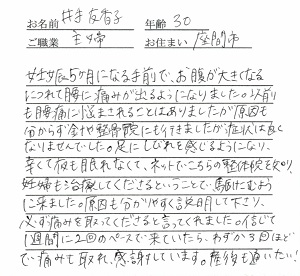 お名前 井手友香子 年齢 30
ご職業 主婦 お住まい 座間市
妊娠5ケ月になる手前で、お腹が大きくなる
につれて腰に痛みが出るようになりました。以前
も腰痛に悩まされることはありましたが原因も
分からず余や整骨院にも行きましたが症状は良く
なりませんでした。足にしびれを感じるようになり、
辛くて夜も眠れなくて、ネットでこちらの整体院を知り
妊婦も治療してくださるということで、駆けこむよう
に来ました。原因も分かりやすく説明して下さり、
必ず痛みを取ってくださると言ってくれました。信じて
1週間に2回のペースで来ていたら、わずか3回ほど
で痛みも取れ、感謝しています。産後も通いたい!